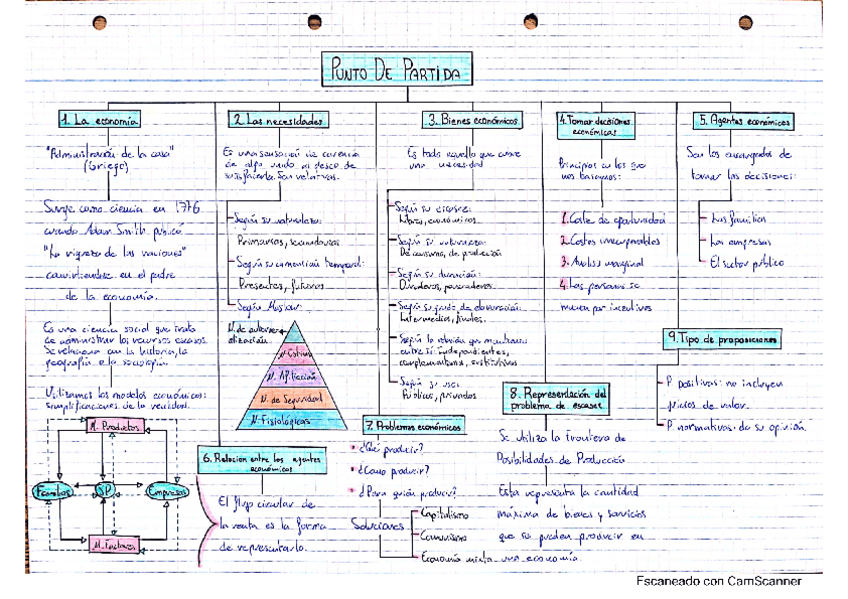 PUNTO DE PARTIDA
1. La economía
"Administración de la casa"
(Griego)
Surge como ciencia en 1776
cuando Adam Smith publicó
"La riqueza de las naciones"
convirtiendose en el padre
de la economía.
Es una ciencia social que trata
de administrar los recursos escasos.
Se relaciona con la historia, la
geografía o la sociología.
Utilizamos los modelos económicos:
simplificaciones de la realidad.
M. Productos
Familias
SP
Empresas
M. Factores
2. Las necesidades
Es una sensación de carencia
de algo unido al deseo de
satisfacerla. Son relativas.
Según su naturaleza:
Primarias, secundarias
Según su temporal:
Presentes, futuras
Según Maslow:
N. de autorre-
alización
N. Estima
N. Afiliación
N. de Seguridad
N. Fisiológicas
3. Bienes económicos
Es todo aquello que cubre
una necesidad
Según su escasez:
Libres, económicos.
Según su naturaleza:
De consumo, de producción
Según su duración:
Duraderos, perecederos.
Según su grado de elaboración:
Intermedios, finales.
Según la relación que mantienen
entre sí: Independientes,
complementarios, sustitutivos
Según su uso:
Públicos, privados
4. Tomar decisiones
económicas
Principios en los que
nos basamos:
1. Coste de oportunidad
2. Costes irrecuperables
3. Análisis marginal
4. Las personas se
mueven por incentivos
5. Agentes económicos
Son los encargados de
tomar las decisiones:
Las familias
Las empresas
El sector público
6. Relación entre los agentes
económicos
El flujo circular de
la renta es la forma
de representarlo.
7. Problemas económicos
¿Qué producir?
¿Cómo producir?
¿Para quién producir?
Soluciones
Capitalismo
Comunismo
Economía mixta
8. Representación del
problema de escasez
Se utiliza la frontera de
Posibilidades de Producción
Esta representa la cantidad
máxima de bienes y servicios
que se pueden producir en
una economía.
9. Tipo de proposiciones
P. positivas: no incluyen
juicios de valor.
P. normativas: da su opinión.
Escaneado con CamScanner